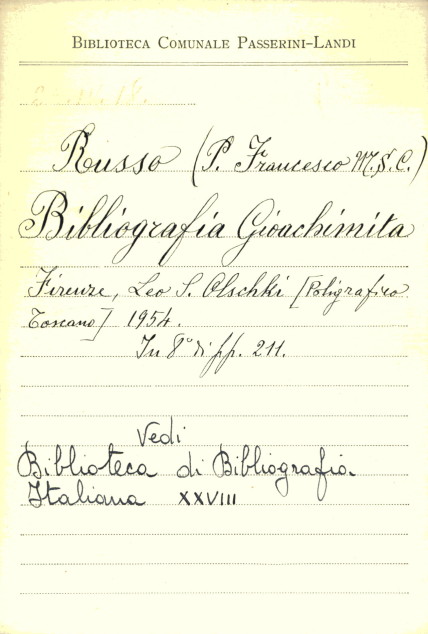 BIBLIOTECA COMUNALE PASSERINI-LANDI
Russo (P. Francesco M.S.C.)
Bibliografia Gioachimita
Firenze, Leo S. Olschki [Poligrafico
Toscano] 1954.
In 8° di pp. 211.
Vedi
Biblioteca di Bibliografia
Italiana XXVIII